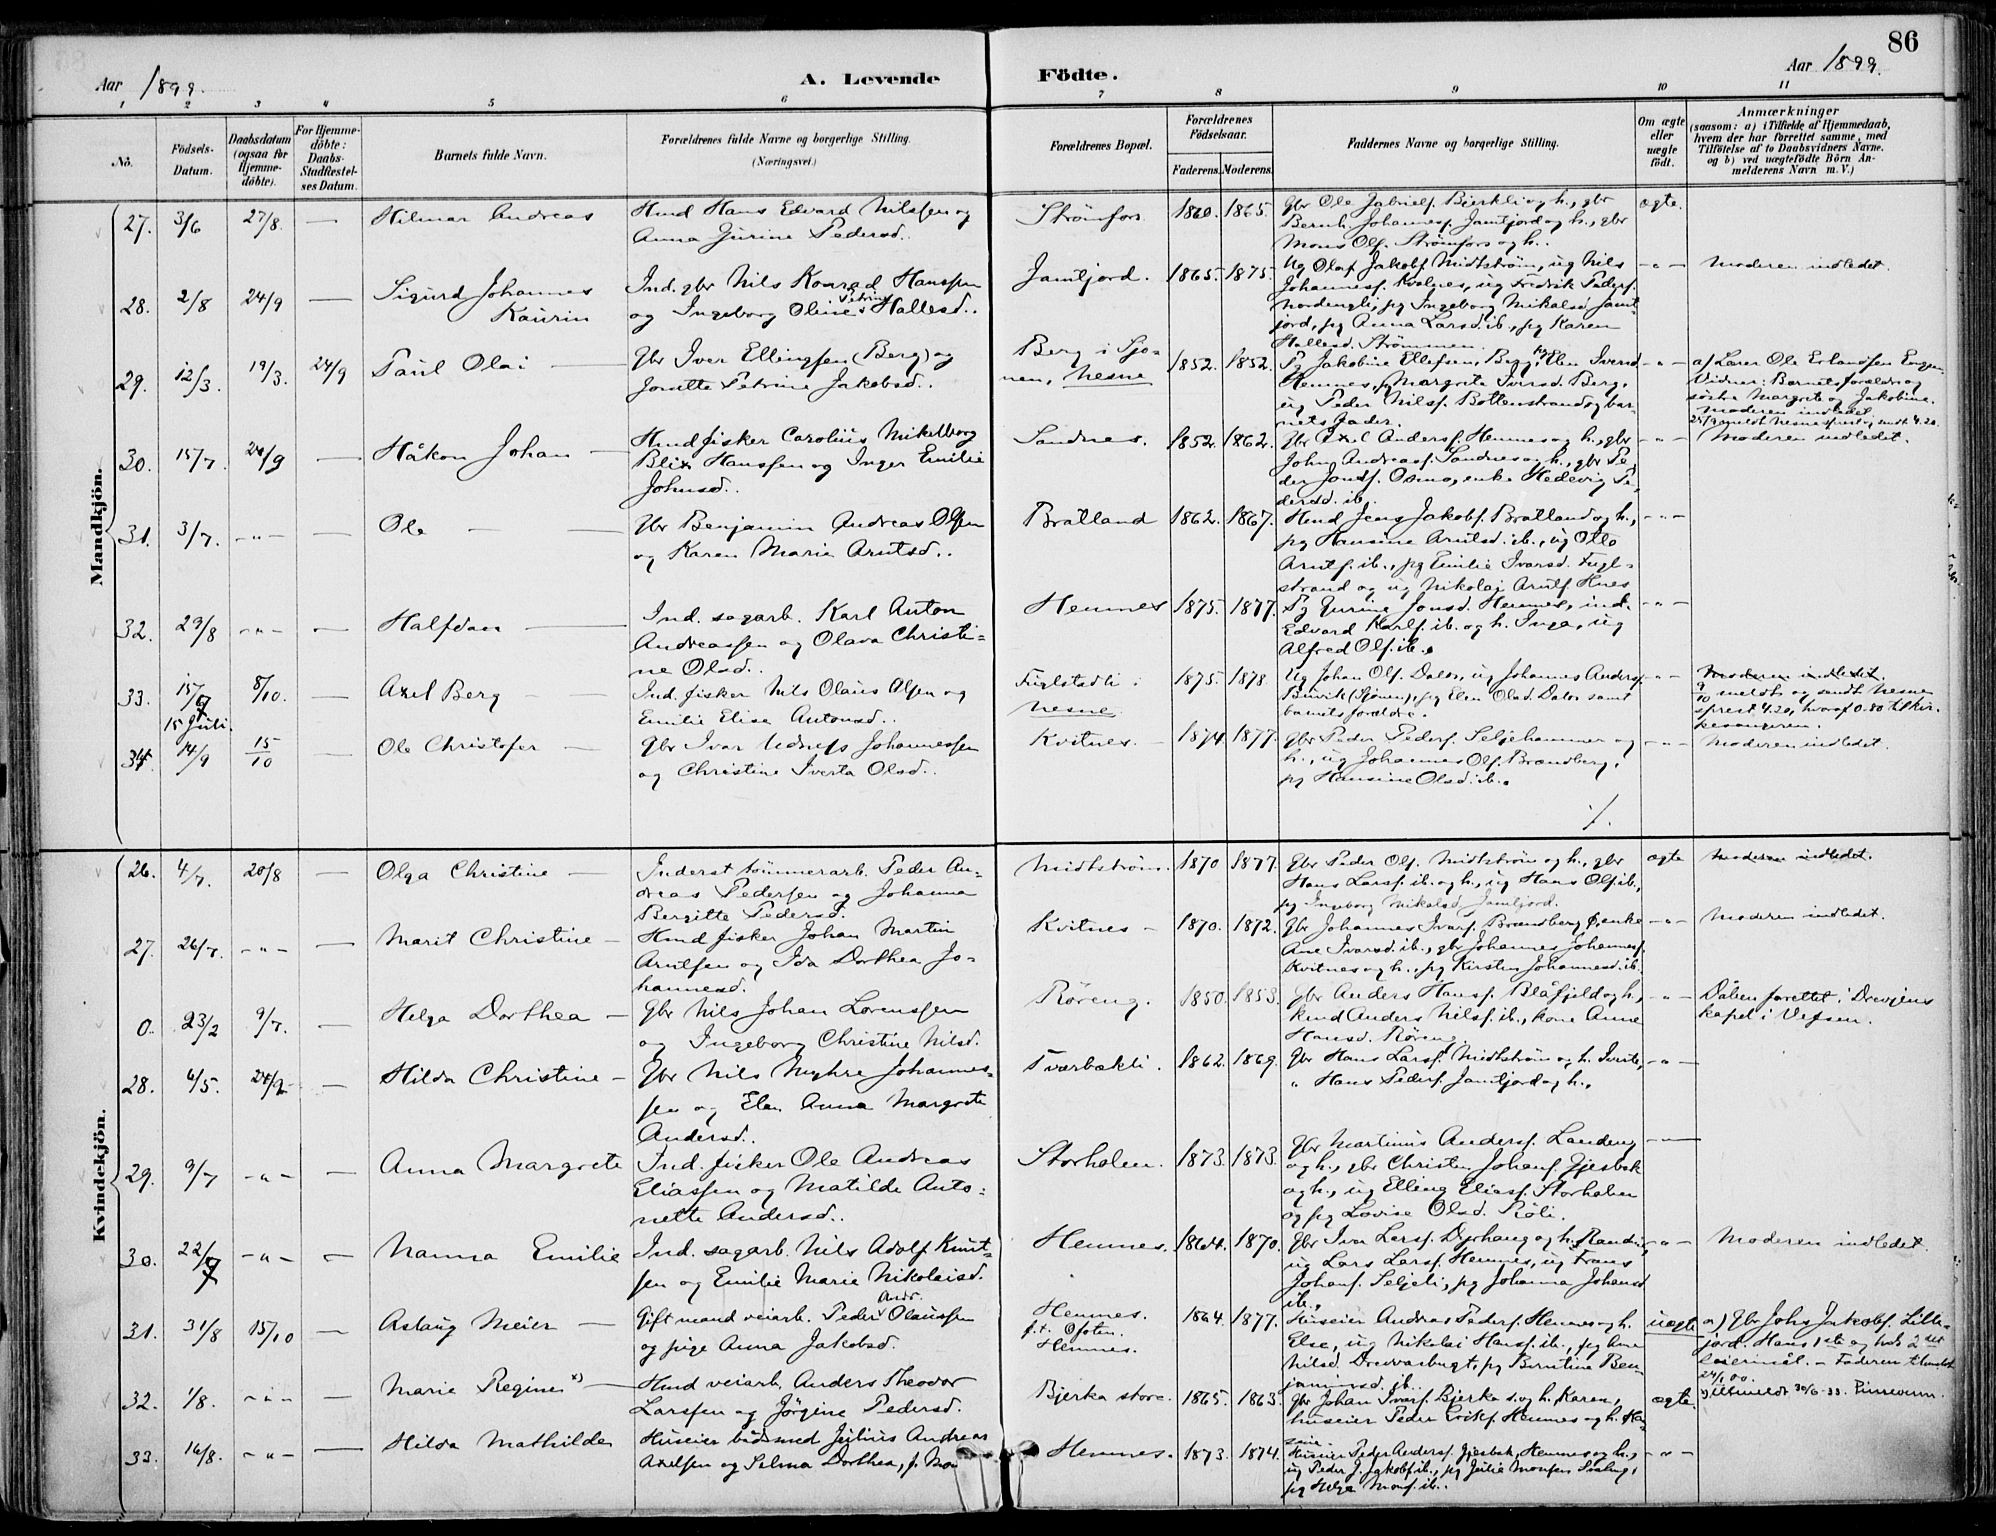 86
Aar 1899.
A. Levende Födte.
Aar 1899.
1 2 3 4 5 6 7 8 9 10 11
No.
Födsels-Datum.
Daabsdatum (ogsaa for Hjemme-døbte).
For Hjemme-døbte: Daabs-Stadfæstel-ses Datum.
Barnets fulde Navn.
Forældrenes fulde Navne og borgerlige Stilling.
(Næringsvei.)
Forældrenes Bopæl.
Forældrenes Födselsaar.
Faderens. Moderens.
Faddernes Navne og borgerlige Stilling.
Om ægte eller uægte født.
Anmærkninger
(saasom: a) i Tilfælde af Hjemmedaab,
hvem der har forrettet samme, med
Tilføielse af to Daabsvidners Navne.
og b) ved uægtefödte Börn An-
melderens Navn m. V.)
Mandkjön.
27. 3/6 27/8. — Hilmar Andreas
Kmd Hans Edvard Nilssen og
Anna Jurine Pedersd.
Strømfors 1860. 1865.
Gbr Ole Gabrielf. Bjerkli og h., gbr
Bernh. Johannesf. Jamtjord og h., gbr
Mons Olf. Strømfors og h.
ægte.
28. 2/8 24/9 — Sigurd Johannes
Kaurin
Ind. gbr Nils Konrad Hanssen
og Ingeborg Oline Petrine Hallesd..
Jamtjord. 1865. 1875.
Ug Olaf Jakobf. Midtstrøm, ug Nils
Johannesf. Kvalnes, ug Fredrik Pedersf.
Nordengli, pg Ingeborg Mikalsd. Jamt-
jord, pg Anna Larsd. ib., pg Karen
Hallesd. Strømmen.
-"- Moderen indledet.
29. 12/3. 19/3. 24/9 Paul Olai —
Gbr Iver Ellingsen (Berg) og
Jonette Petrine Jakobsd..
Berg i Sjo-
nen, Nesne 1852. 1852.
Pg Jakobine Ellefsen, Berg, pg Elen Iversd.
Hemnes, pg Margrete Iversd. Berg,
ug Peder Nilsf. Bottenstrand og bar-
nets fader.
-"- a) Lærer Ole Erlandsen Engen
Vidner: Barnets forældre og
søstre Margrete og Jakobine.
Moderen indledet.
30. 15/7. 24/9 — Håkon Johan —
Kmd fisker Carolius Mikelborg
Blix Hanssen og Inger Emilie
Johnsd..
Sandnes. 1852. 1862.
Gbr Axel Andersf. Hemnes og h., gbr
John Andreasf. Sandnes og h., gbr Pe-
der Jonsf. Osmo, enke Hedevig Pe-
dersd. ib.
-"- Moderen indledet.
31. 3/7. -"- — Ole — —
Gbr Benjamin Andreas Olsen
og Karen Marie Arntsd..
Bratland 1862. 1867.
Kmd Jens Jakobf. Bratland og h.,
pg Hansine Arntsd. ib., ug Otto
Arntf. ib., pg Emilie Ivarsd. Fugl-
strand og ug Nikolai Arntf.
-"-
32. 29/8 -"- — Halfdan —
Ind. sagarb. Karl Anton
Andreassen og Olava Christi-
ne Olsd..
Hemnes 1875. 1877.
Pg Jurine Jonsd. Hemnes, ind.
Edvard Karlf. ib. og h. Inga, ug
Alfred Olf. ib.
-"-
33. 15/7
15 Juli. 8/10. Axel Berg — —
Ind. fisker Nils Olaus Olsen og
Emilie Elise Antonsd..
Fuglstadli.
Nesne 1875. 1878
Ug Johan Olf. Dalen, ug Johannes Andersf.
Buvik (Sjonen), pg Elen Olsd. Dalen samt
barnets forældre.
-"- Moderen indledet.
9/10 meldt og sendt Nesne
sprest 4.20, hvoraf 0.80 til kir-
kesangeren.
34. 14/9 15/10 — Ole Christofer —
Gbr Ivar Johannessen
og Christine Iverta Olsd..
Kvitnes. — 1874 1877.
Gbr Peder Pedersf. Seljehammer og
h., ug Johannes Olf. Brændberg,
pg Hansine Olsd. ib.
-"- Moderen indledet.
./.
Kvindekjön.
26. 4/7. 20/8 — Olga Christine —
Inderst tømmerarb. Peder An-
dreas Pedersen og Johanna
Bergitte Pedersd.
Midtstrøm. 1870 1877.
Gbr Peder Olf. Midtstrøm og h., gbr
Hans Larsf. ib. og h., ug Hans Olf. ib.,
pg Ingeborg Mikalsd. Jamtjord.
ægte Moderen indledet.
27. 26/7. -"- — Marit Christine —
Kmd fisker Johan Martin
Arntsen og Ida Dorthea Jo-
hannesd.
Kvitnes — 1870. 1872.
Gbr Johannes Ivarf. Brændberg Ø, enke
Ane Ivarsd. ib., gbr Johannes Johannesf.
Kvitnes og h., pg Kirsten Johannesd. ib.
-"- Moderen indledet.
0. 23/2 9/7. Helga Dorthea —
Gbr Nils Johan Lorenssen
og Ingeborg Christine Nilsd.
Røreng. 1850. 1853.
Gbr Anders Hansf. Blåfjeld og h.,
kmd Anders Nilsf. ib., kone Anne
Hansd. Røreng.
-"- Dåben forettet i Drevjens
kapel i Vefsen.
28. 6/5. 24/9 — Hilda Christine —
Gbr Nils Myhre Johannes-
sen og Elen Anna Margrete
Andersd..
Tværbakli. 1862. 1869.
Gbr Hans Larsf. Midtstrøm og h. Ivrite,
" Hans Pedersf. Jamtjord og h.,
-"-
29. 9/7 -"- — Anna Margrete
Ind. fisker Ole Andreas
Eliassen og Matilde Anto-
nette Andersd..
Storhalen. 1873. 1873.
Gbr Martinus Andersf. Landeng
og h., gbr Christen Johanf. Gjesbak
og h., ug Elling Eliasf. Storhalen
og pg Lovise Olsd. Røli.
-"-
30. 22/7 -"- — Nanna Emilie
Ind. sagarb. Nils Adolf Knut-
sen og Emilie Marie Nikolaisd.
Hemnes. 1864. 1870.
Gbr Ivar Larsf. Dyrhaug og h.,
ug Lars Larsf. Hemnes, ug Frans
Johanf. Seljeli, pg Johanna Johansd.
ib.,
-"- Moderen indledet
31. 31/8 15/10 — Aslaug Meier —
Gift mand veiarb. Peder Andr. Olaussen
og pige Anna Jakobsd.
Hemnes.
f. t. Ofoten.
Hemnes. 1864. 1877.
Huseier Andreas Pedersf. Hemnes og h.
Else, ug Nikolai Hansf. ib., pg Anne
Nilsd. Drevvasbugt, pg Berntine Ben-
jaminsd. ib.
uægte a) Gbr Johs Jakobf. Lille-
jord. Hans 1ste og hds 2det
leiermål. — Faderen tilmeldt
24/1 00.
32. 1/8. -"- — Marie Regine x) —
Kmd veiarb. Anders Theodor
Larssen og Jørgine Pedersd.
Bjerka store 1865. 1863.
Gbr Johan Ivarf. Bjerka s. og h. Karen,
huseier Peder Erikf. Hemnes og h. Ha-
ægte. x) tilmeldt 30/6-33.
33. 16/8. -"- — Hilda Mathilde
Huseier bådsmed Julius Andreas
Axelsen og Selma Dorthea, f. Mo
Hemnes. 1873. 1874.
Huseier Peder Andersf. Gjesbak, Hemnes og h.,
ug Peder J. Jakobf. ib., pg Julie Monsen,
pg Helga Monsf. ib..
-"-